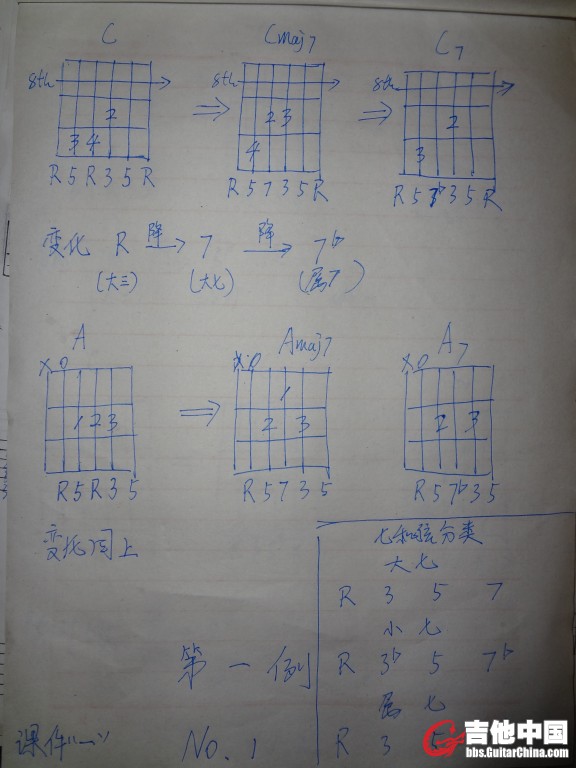 C Cmaj7 C7
8th 8th 8th
2 2 3 2
3 4 4 3
R 5 R 3 5 R R 5 7 3 5 R R 5 7b 3 5 R
变化 R 降→ 7 降→ 7b
(大三) (大七) (属7)
A Amaj7 A7
x 0 x 0 x 0
1
1 2 3 2 3 2 3
R 5 R 3 5 R 5 7 3 5 R 5 7b 3 5
变化同上
七和弦分类
大七
R 3 5 7
小七
R 3b 5 7b
属七
R 3 5
第一例
课件"一" No.1
吉他中国
bbs.GuitarChina.com